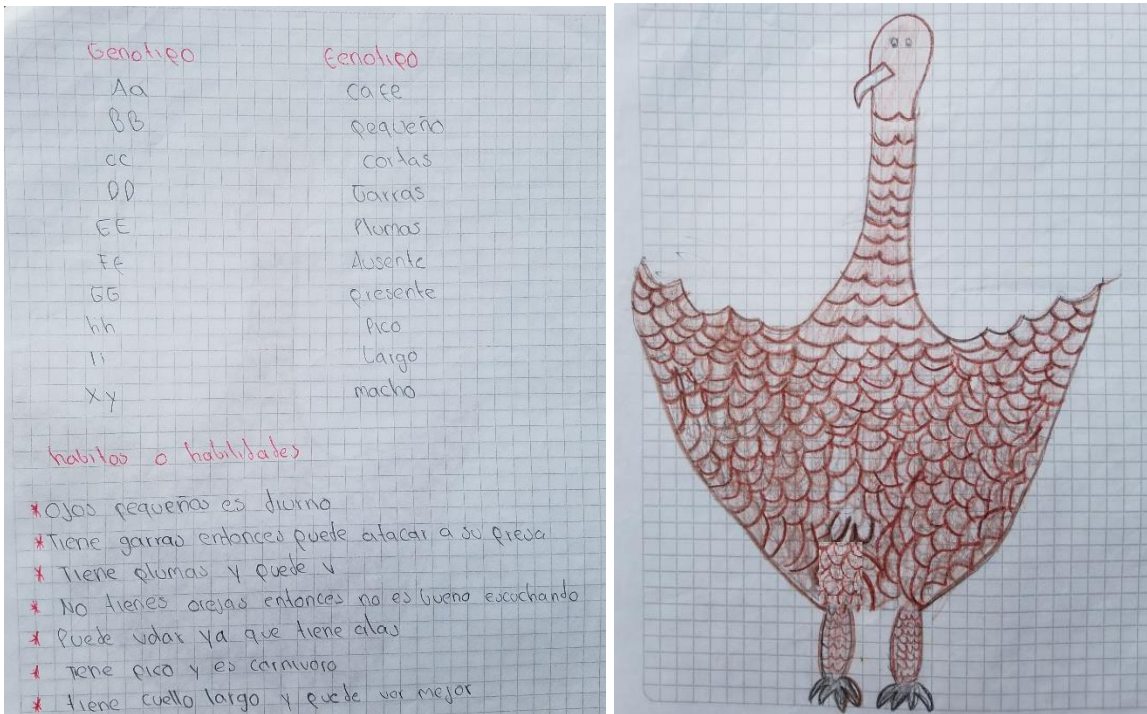 Genotipo Fenotipo
Aa cafe
BB pequeño
cc cortas
DD Garras
EE Plumas
Ff Ausente
GG presente
hh Pico
Ii Largo
Xy macho
habitos o habilidades
* Ojos pequeños es diurno
* Tiene garras entonces puede atacar a su presa
* Tiene plumas y puede v
* No tienes orejas entonces no es bueno escuchando
* Puede volar ya que tiene alas
* Tiene pico y es carnivoro
* tiene cuello largo y puede ver mejor